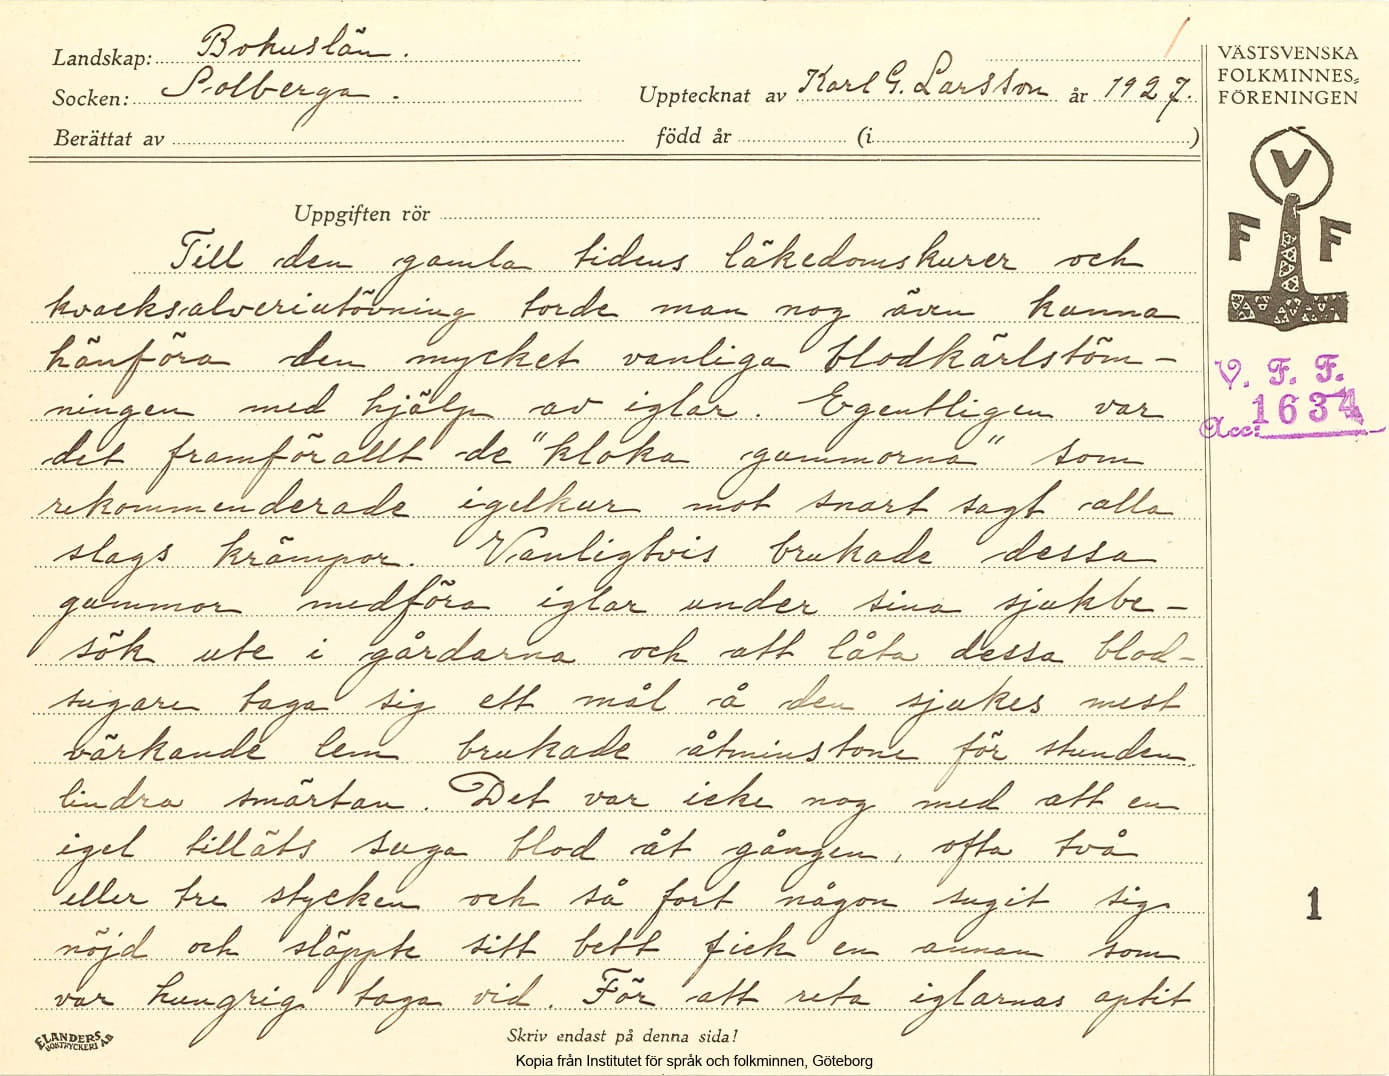 Landskap: Bohuslän.
Socken: Solberga.
Upptecknat av Karl G. Larsson år 1927.
Berättat av född år (i )
VÄSTSVENSKA
FOLKMINNES-
FÖRENINGEN
V
F F
V. F. F.
Acc: 1634
Uppgiften rör
Till den gamla tidens läkedomskurer och
kvacksalveriutövning torde man nog även kunna
hänföra den mycket vanliga blodkärlstöm-
ningen med hjälp av iglar. Egentligen var
det framförallt de "kloka gummorna" som
rekommenderade igelkur mot snart sagt alla
slags krämpor. Vanligtvis brukade dessa
gummor medföra iglar under sina sjukbe-
sök ute i gårdarna och att låta dessa blod-
sugare taga sig ett mål å den sjukes mest
värkande lem brukade åtminstone för stunden
lindra smärtan. Det var icke nog med att en
igel tilläts suga blod åt gången, ofta två
eller tre stycken och så fort någon sugit sig
nöjd och släppt sitt bett fick en annan som
var hungrig taga vid. För att reta iglarnas aptit
1
ELANDERS
BOKTRYCKERI AB
Skriv endast på denna sida!
Kopia från Institutet för språk och folkminnen, Göteborg